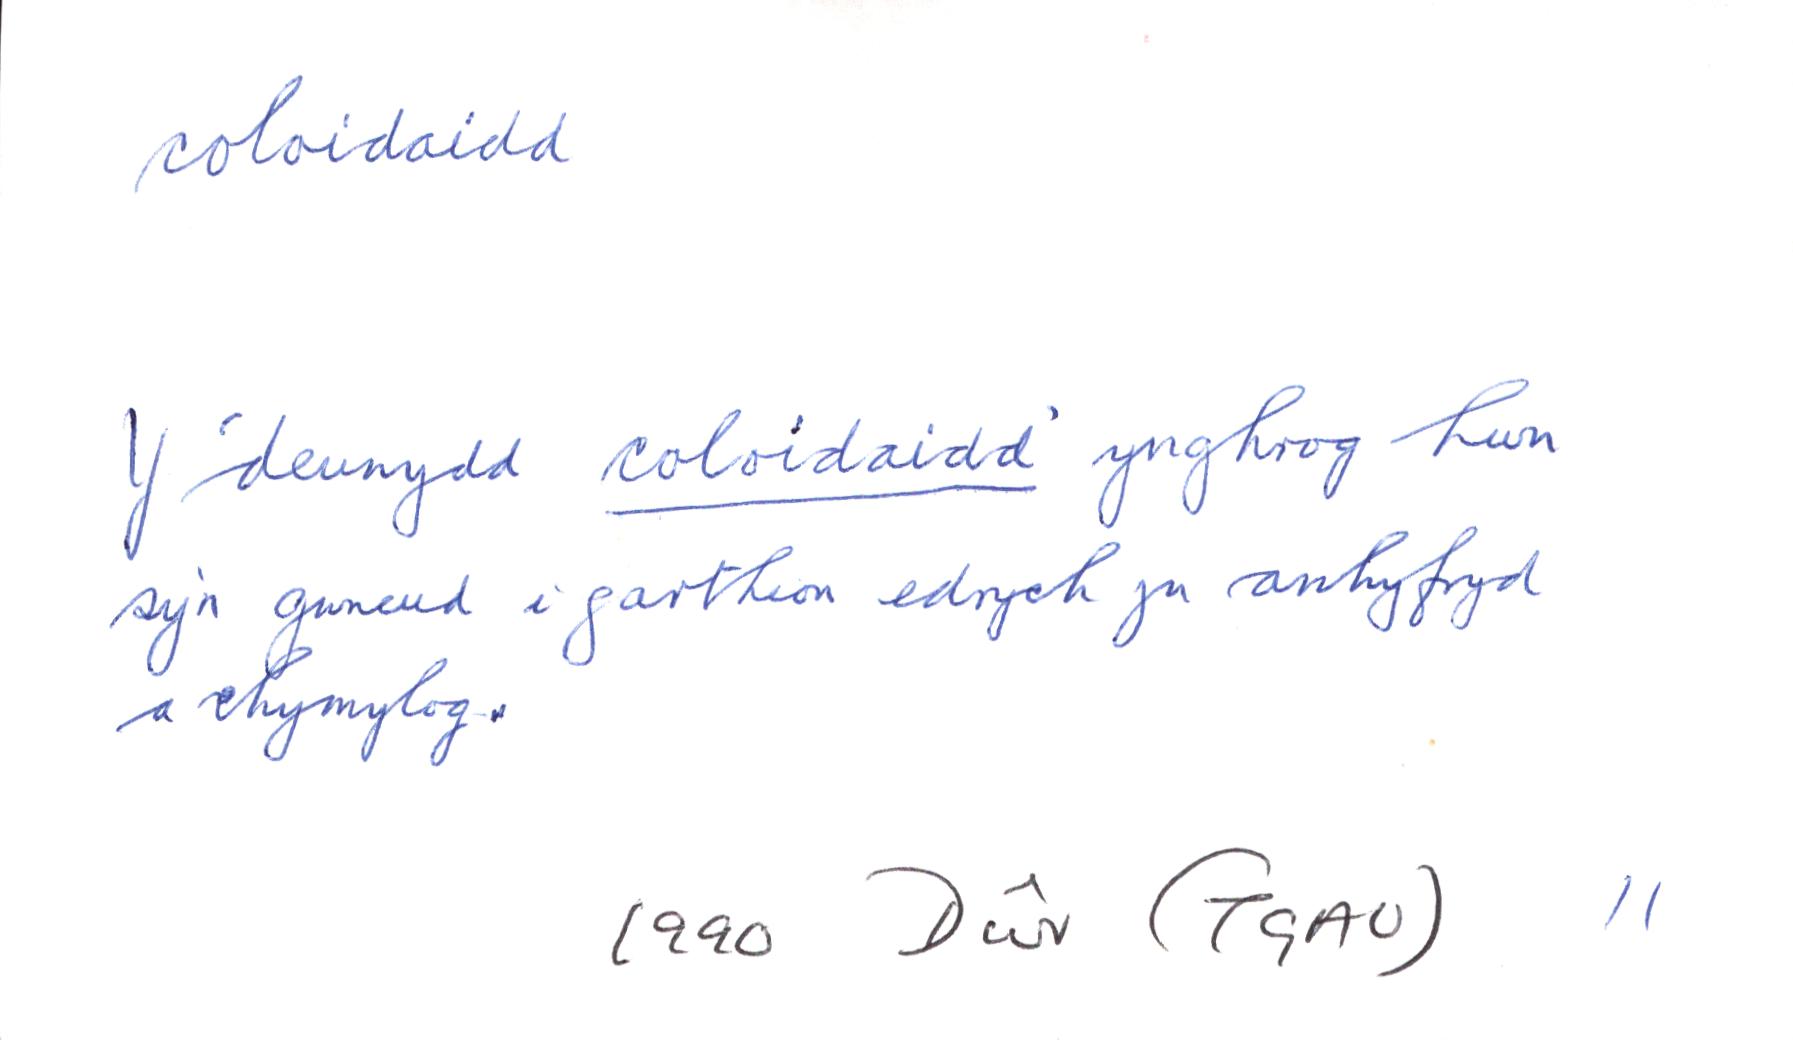 coloidaidd
Y 'deunydd coloidaidd' ynghrog hwn
sy'n gwneud i garthion edrych yn anhyfryd
a chymylog.
1990 Dŵr (TGAU) 11